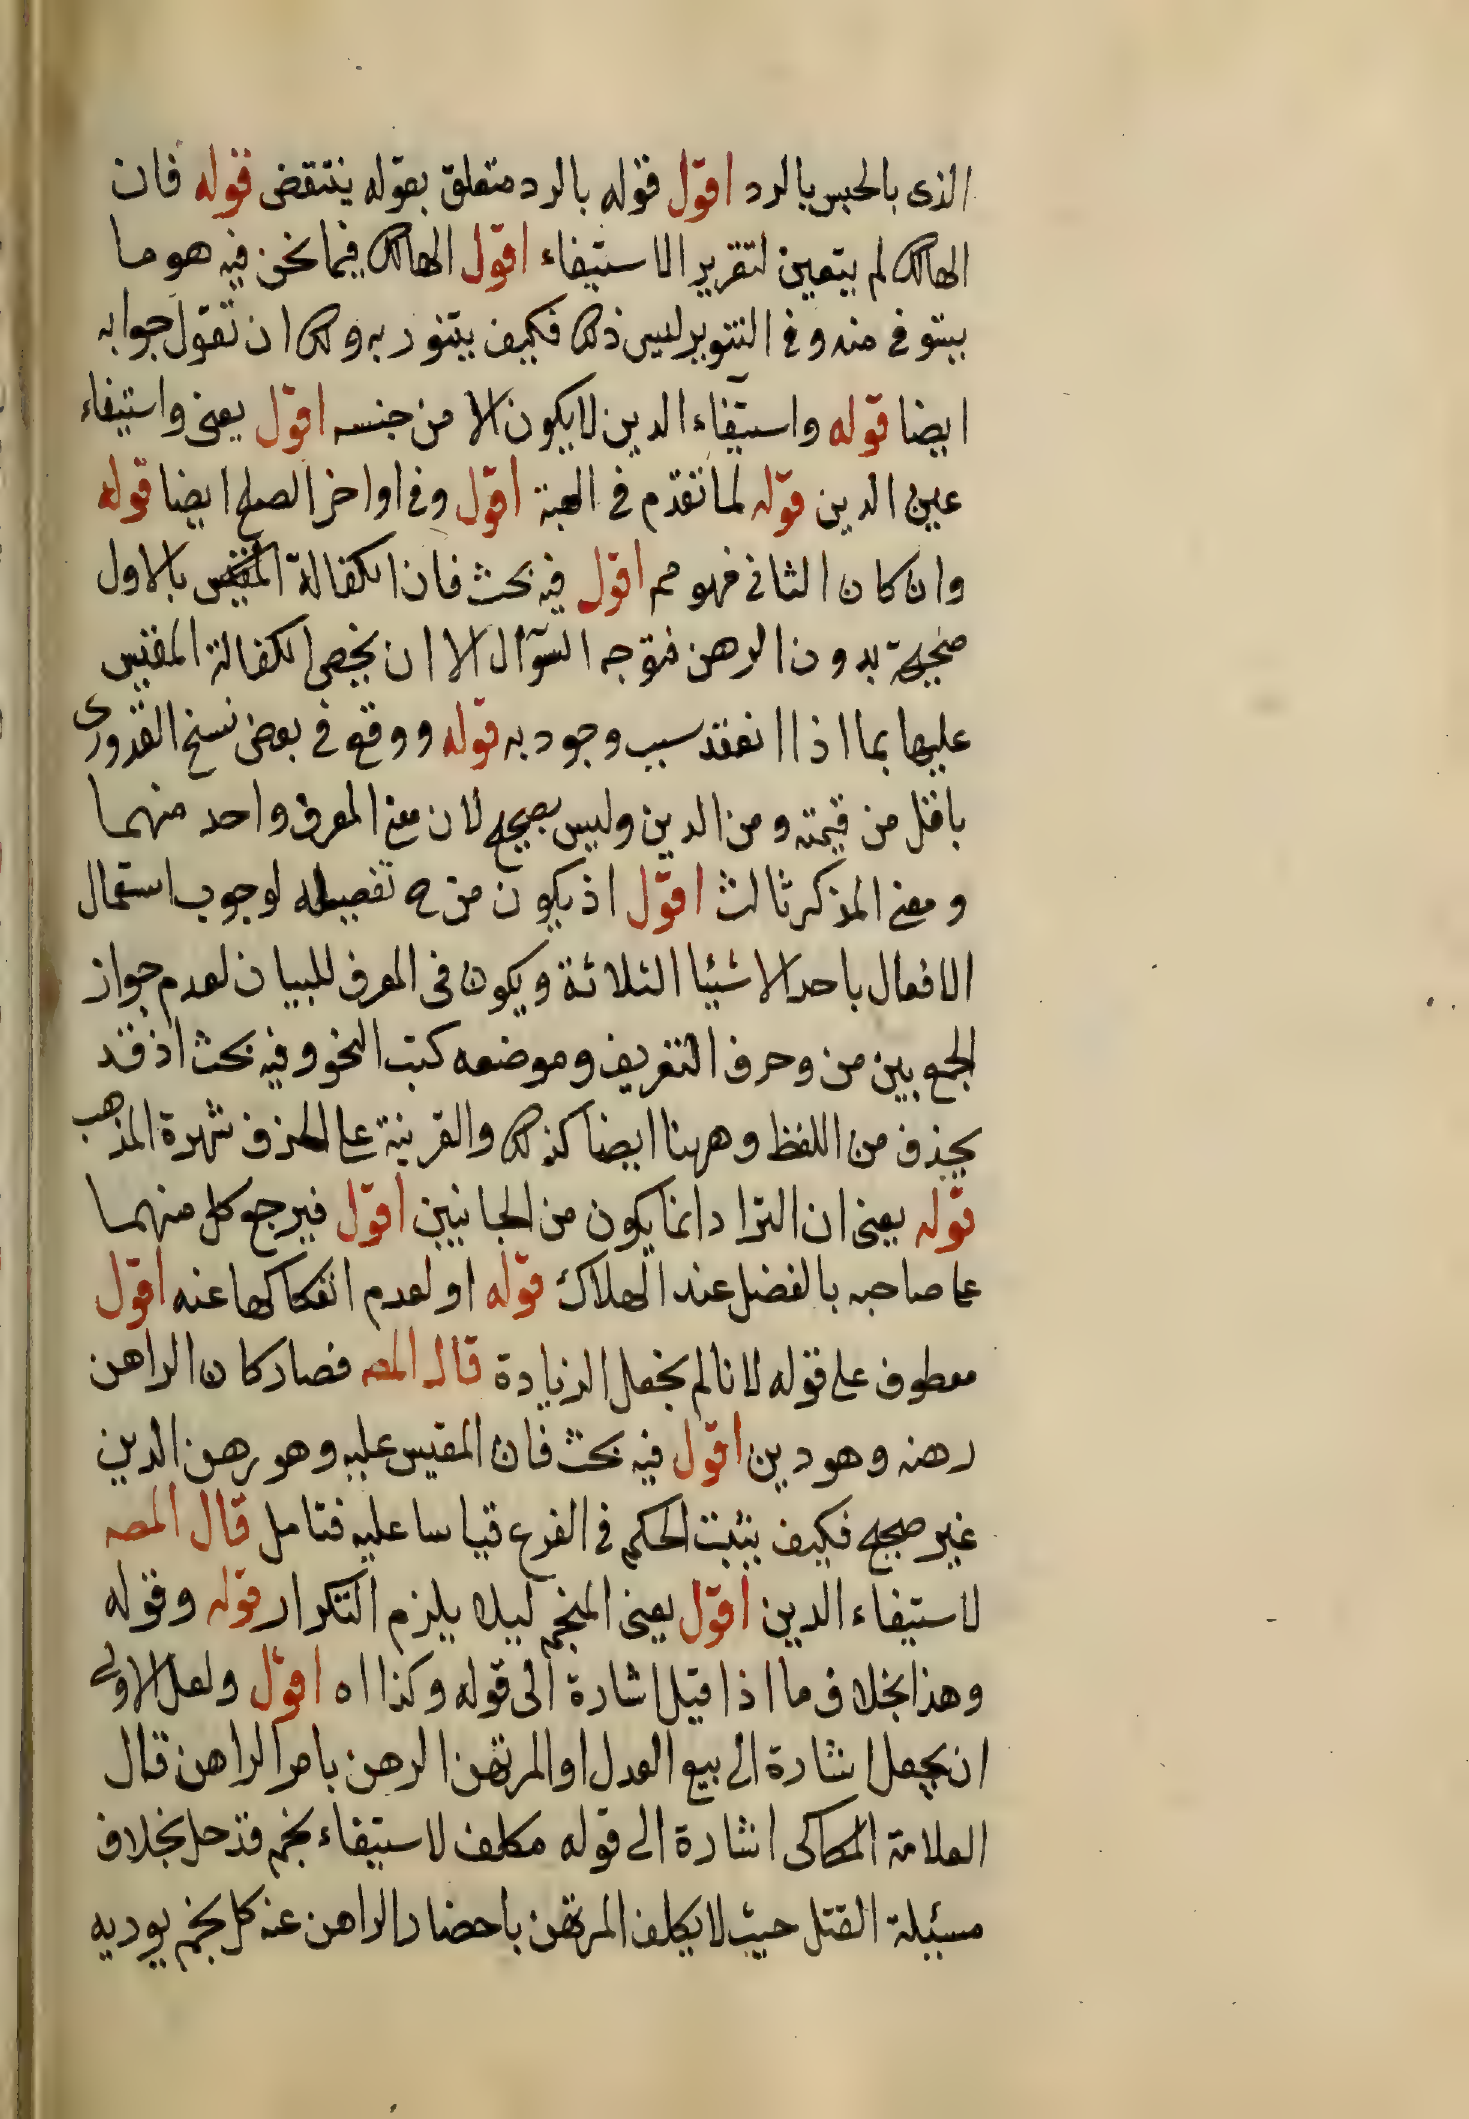 الذى بالحبس بالرد اقول قوله بالرد متعلق بقوله ينتقض قوله فان
الهالك لم يتعين لتقرير الاستيفاء اقول الهالك فيما نحن فيه هو ما
يتوفى منه وفى التنوير ليس ذلك فكيف يتنور به ولك ان تقول جوابه
ايضا قوله واستيفاء الدين لا يكون الا من جنسه اقول يعنى واستيفاء
عين الدين قوله لما تقدم فى الهبة اقول وفى اواخر الصلح ايضا قوله
وان كان الثانى فهو مم اقول فيه بحث فان الكفالة المقيس بالاول
صحيحة بدون الرهن فتوجه السؤال الا ان يخص الكفالة المقيس
عليها بما اذا انعقد سبب وجود به قوله ووقع فى بعض نسخ القدورى
باقل من قيمته ومن الدين وليس بصحيح لان معنى المعرف واحد منهما
ومعنى المذكر ثالث اقول اذ يكون من ح تفصيله لوجوب استعمال
الافعال باحد الاشيئا الثلاثة ويكون فى المعرف للبيان لعدم جواز
الجمع بين من وحرف التعريف وموضعه كتب النحو وفيه بحث اذ قد
يحذف من اللفظ وههنا ايضا كذلك والقرينة على الحذف شهرة المذهب
قوله يعنى ان التراد انما يكون من الجانبين اقول فيرجع كل منهما
على صاحبه بالفضل عند الهلاك قوله او لعدم انفكاكها عنه اقول
معطوف على قوله لانا لم نجعل الزيادة قال المصه فصار كان الراهن
رهنه وهو دين اقول فيه بحث فان المقيس عليه وهو رهن الدين
غير صحيح فكيف يثبت الحكم فى الفرع قياسا عليه فتامل قال المصه
لاستيفاء الدين اقول يعنى المنجم ليلا يلزم التكرار قوله وقوله
وهذا بخلاف ما اذا قيل اشارة الى قوله وكذا اه اقول ولعل الاولى
ان يجعل اشارة الى بيع العدل او المرتهن الرهن بامر الراهن قال
العلامة الكاكى اشارة الى قوله مكلف لاستيفاء نجم قد حل بخلاف
مسئلة القتل حيث لا يكلف المرتهن باحضار الراهن عند كل نجم يوديه